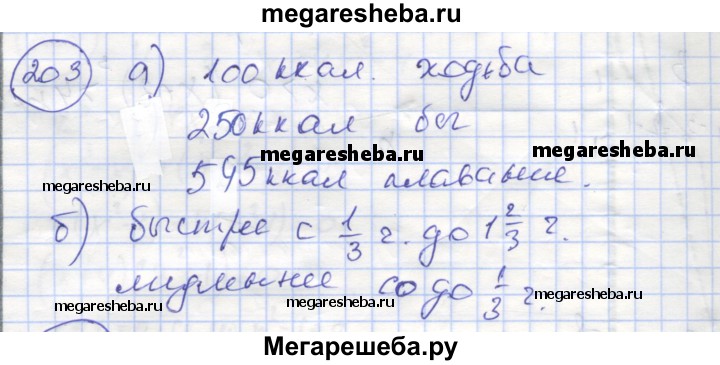 megaresheba.ru
203 а) 100 ккал. ходьба
250 ккал бег
megaresheba.ru megaresheba.ru
megaresheba.ru 595 ккал плавание.
б) быстрее с 1/3 ч. до 1 2/3 ч.
медленнее со до 1/3 ч.
megaresheba.ru megaresheba.ru megaresheba.ru
Мегарешеба.ру